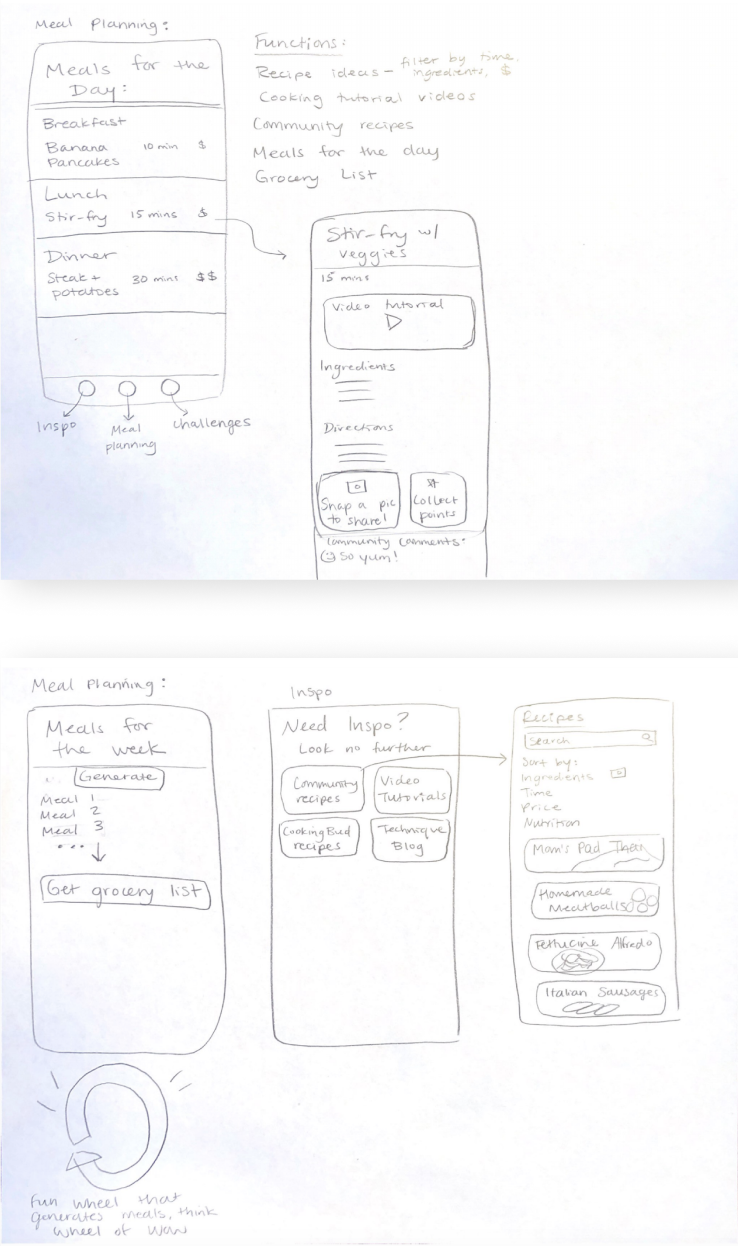 Meal Planning:
Meals for the
Day:
Breakfast
Banana 10 min $
Pancakes
Lunch
Stir-fry 15 mins $
Dinner
Steak + 30 mins $$
potatoes
Inspo
Meal
planning
challenges
Functions:
Recipe ideas – filter by time,
ingredients, $
Cooking tutorial videos
Community recipes
Meals for the day
Grocery List
Stir-fry w/
veggies
15 mins
Video tutorial
Ingredients
Directions
Snap a pic
to share!
Collect
points
Community Comments:
So yum!
Meal Planning:
Meals for
the week
Generate
Meal 1
Meal 2
Meal 3
...
Get grocery list
Fun wheel that
generates meals, think
wheel of wow
Inspo
Need Inspo?
Look no further
Community
recipes
Video
Tutorials
CookingBud
recipes
Technique
Blog
Recipes
Search
Sort by:
Ingredients
Time
Price
Nutrition
Mom's Pad Thai
Homemade
Meatballs
Fettucine Alfredo
Italian Sausages